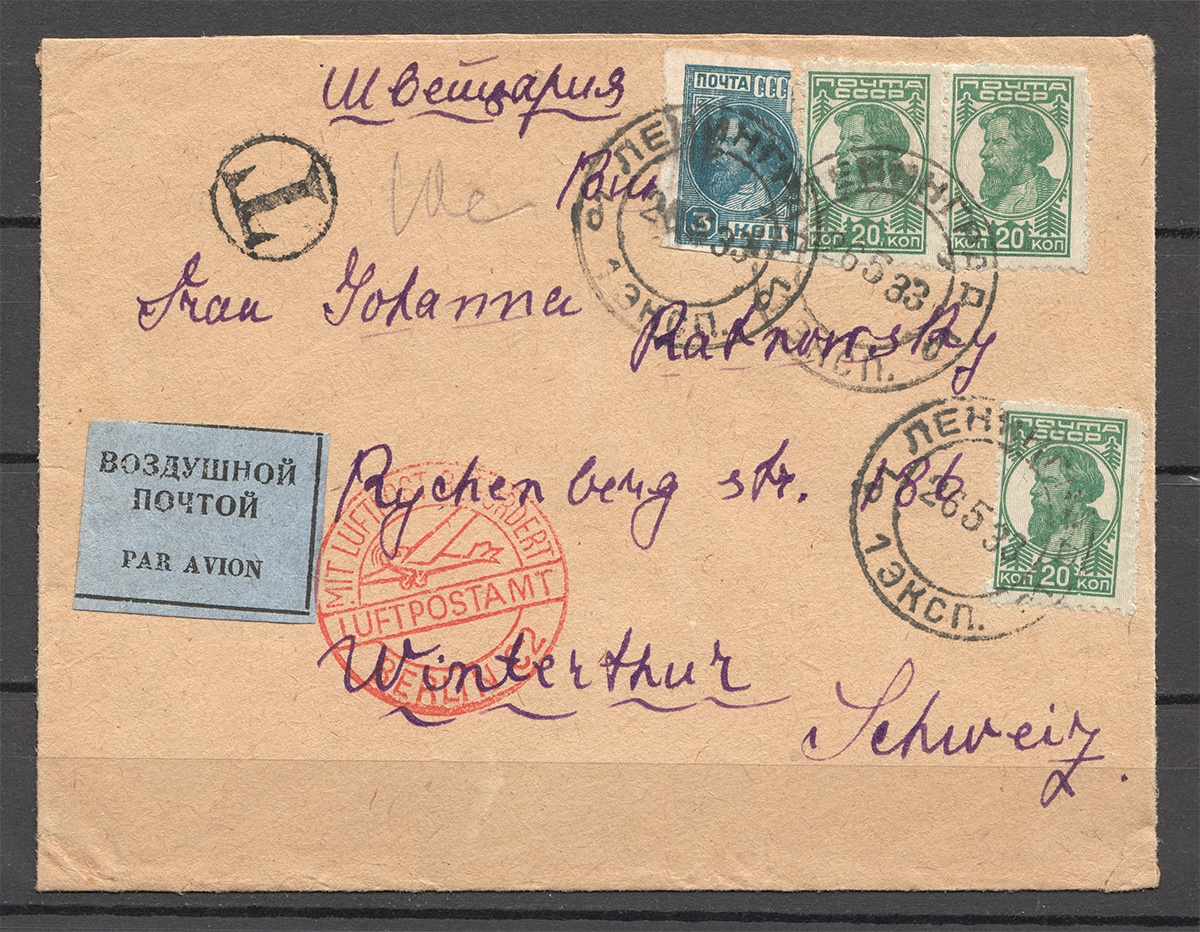 Швейцария
Frau Johanna
Ratnowsky
Rychenberg str. 186
Winterthur
Schweiz.
T
ПОЧТА СССР
3 КОП
ПОЧТА
СССР
КОП 20 КОП
ПОЧТА
СССР
КОП 20 КОП
ЛЕНИНГРАД
26 5 33
ЭКСП.
ЛЕНИНГРАД
26 5 33
ЭКСП.
ПОЧТА
СССР
КОП 20 КОП
ЛЕНИН
26 5 33
1 ЭКСП.
ВОЗДУШНОЙ
ПОЧТОЙ
PAR AVION
MIT LUFTPOST BEFÖRDERT
LUFTPOSTAMT
BERLIN C2